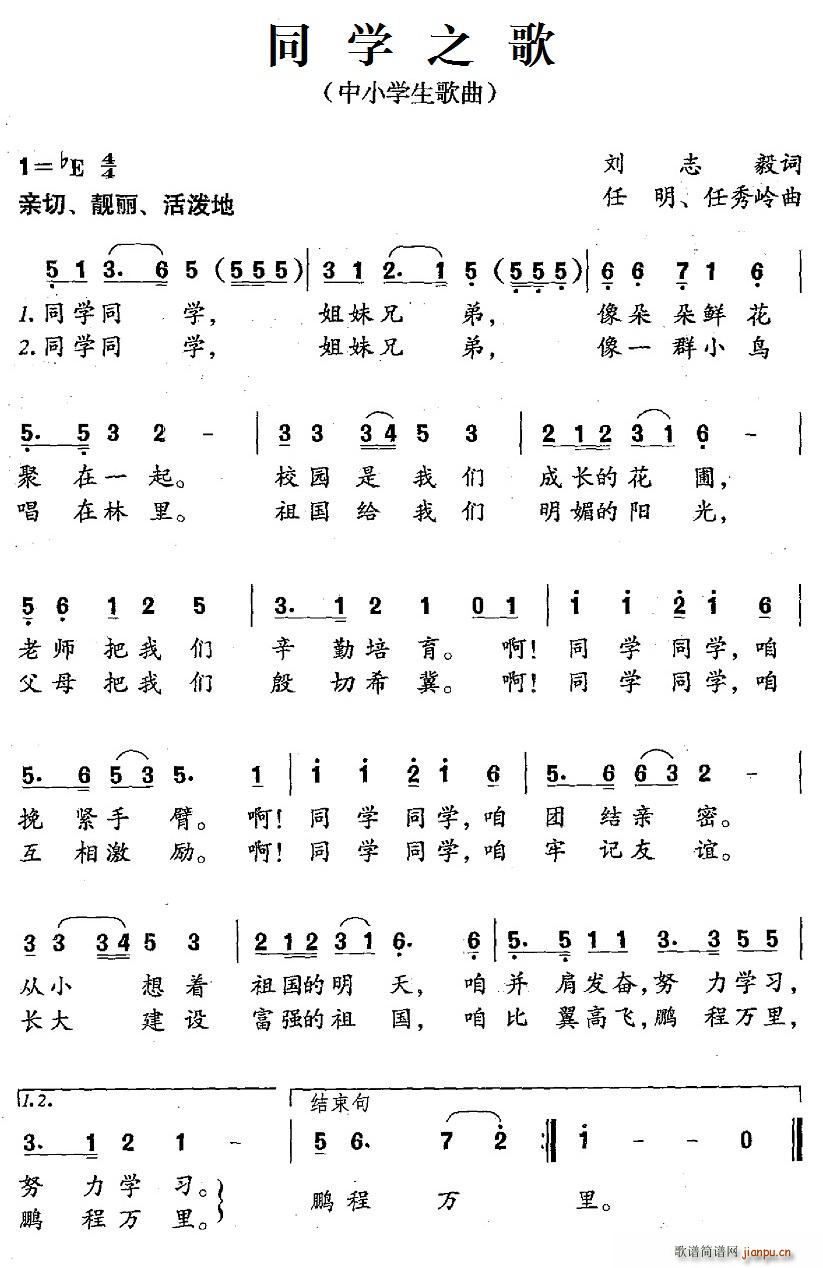 同学之歌
（中小学生歌曲）
1=♭E 4/4
刘志毅词
亲切、靓丽、活泼地
任明、任秀岭曲
5 1 3. 6 5 (5 5 5) | 3 1 2. 1 5 (5 5 5) | 6 6 7 1 6 |
1. 同学同学， 姐妹兄弟， 像朵朵鲜花
2. 同学同学， 姐妹兄弟， 像一群小鸟
5. 5 3 2 - | 3 3 3 4 5 3 | 2 1 2 3 1 6 - |
聚在一起。 校园是我们 成长的花圃，
唱在林里。 祖国给我们 明媚的阳光，
5 6 1 2 5 | 3. 1 2 1 0 1 | i i 2 i 6 |
老师把我们 辛勤培育。 啊！同学同学，咱
父母把我们 殷切希冀。 啊！同学同学，咱
5. 6 5 3 5. 1 | i i 2 i 6 | 5. 6 6 3 2 - |
挽紧手臂。 啊！同学同学，咱 团结亲密。
互相激励。 啊！同学同学，咱 牢记友谊。
3 3 3 4 5 3 | 2 1 2 3 1 6. 6 | 5. 5 1 1 3. 3 5 5
从小想着 祖国的明天， 咱并肩发奋，努力学习，
长大建设 富强的祖国， 咱比翼高飞，鹏程万里，
1.2. 结束句
3. 1 2 1 - | 5 6. 7 2 :‖ i - - 0 ‖
努力学习。
鹏程万里。
鹏程万里。
歌谱简谱网 jianpu.cn